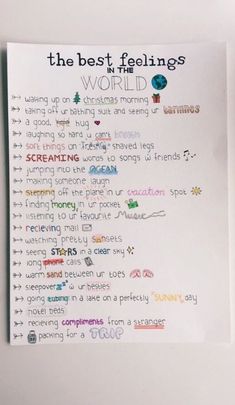 the best feelings
IN THE
WORLD
waking up on christmas morning
taking off ur bathing suit and seeing ur tanlines
a good, tight hug
laughing so hard u can't breath
soft things on freshly shaved legs
SCREAMING words to songs w friends
jumping into the OCEAN
making someone laugh
stepping off the plane in ur vacation spot
finding money in ur pocket
listening to ur favourite Music
recieving mail
watching pretty sunsets
seeing STARS in a clear sky
long phone calls
warm sand between ur toes
sleepovers w ur besties
going tubing in a lake on a perfectly SUNNY day
hotel beds
recieving compliments from a stranger
packing for a TRIP